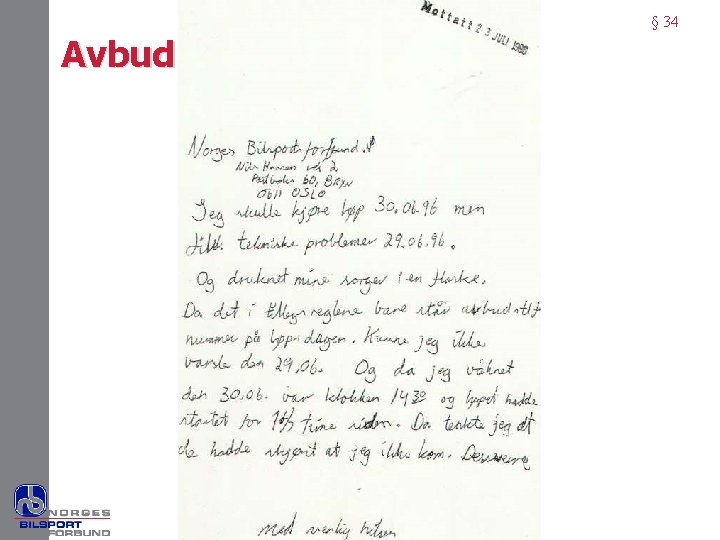 § 34
Avbud
Mottatt 23 JULI
Norges Bilsportforbund.
Nils Hansens vei 2
Postboks 60, Bryn
0611 OSLO
Jeg skulle kjøre løp 30.06.96 men
fikk tekniske problemer 29.06.96.
Og druknet mine sorger i en flaske.
Da det i tilleggsreglene bare står avbudstlf
nummer på løpsdagen. Kunne jeg ikke
varsle den 29.06. Og da jeg våknet
den 30.06. var klokken 1430 og løpet hadde
startet for time siden. Da tenkte jeg at
de hadde skjønt at jeg ikke kom. Desverre
Med vennlig hilsen
NORGES
BILSPORT
FORBUND